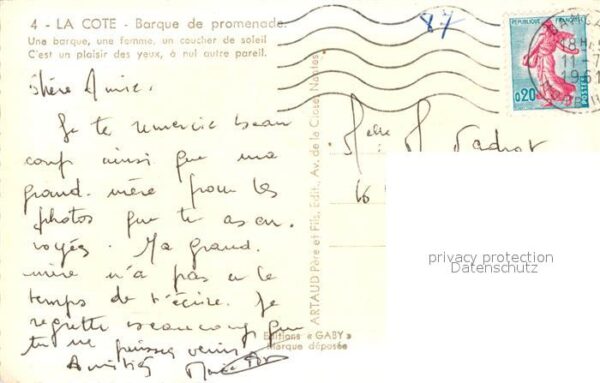 4 - LA COTE - Barque de promenade.
Une barque, une femme, un coucher de soleil
C'est un plaisir des yeux, à nul autre pareil.
87
REPUBLIQUE FRANÇAISE
0,20
POSTES
18H
11-7
1961
Chère Amie.
Je te remercie beau
coup ainsi que ma
grand. mère pour les
photos que tu as en
voyées. Ma grand.
mère n'a pas eu le
temps de t'écrire. Je
regrette beaucoup que
tu ne puisses venir
Amitiés
ARTAUD Père et Fils, Edit., Av. de la Close, Nantes
Editions « GABY »
Marque déposée
Melle M.
16
privacy protection
Datenschutz